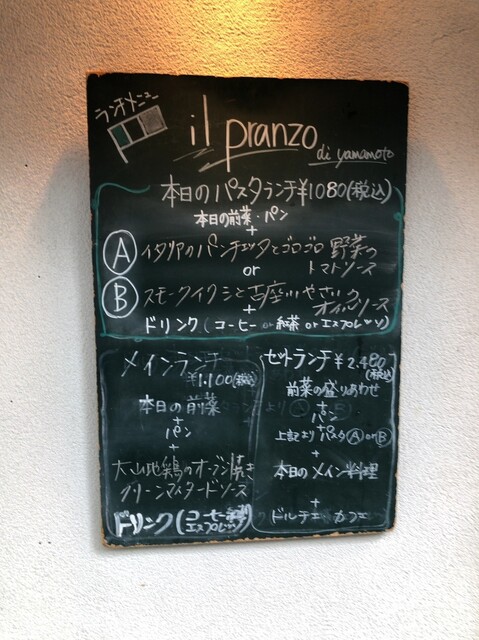 ランチメニュー
il pranzo
di yamamoto
本日のパスタランチ¥1080(税込)
本日の前菜・パン
+
A イタリアのパンチェッタとゴロゴロ野菜の
トマトソース
or
B スモークイワシと
オイルソース
+
ドリンク(コーヒー or 紅茶 or エスプレッソ)
メインランチ
¥1,100(税込)
本日の前菜
+
パン
+
大山地鶏のオーブン焼き
グリーンマスタードソース
ドリンク(コーヒー 紅茶
エスプレッソ)
セットランチ¥2,480
(税込)
前菜の盛りあわせ
+
パン
上記よりパスタA or B
+
本日のメイン料理
+
ドルチェ カフェ